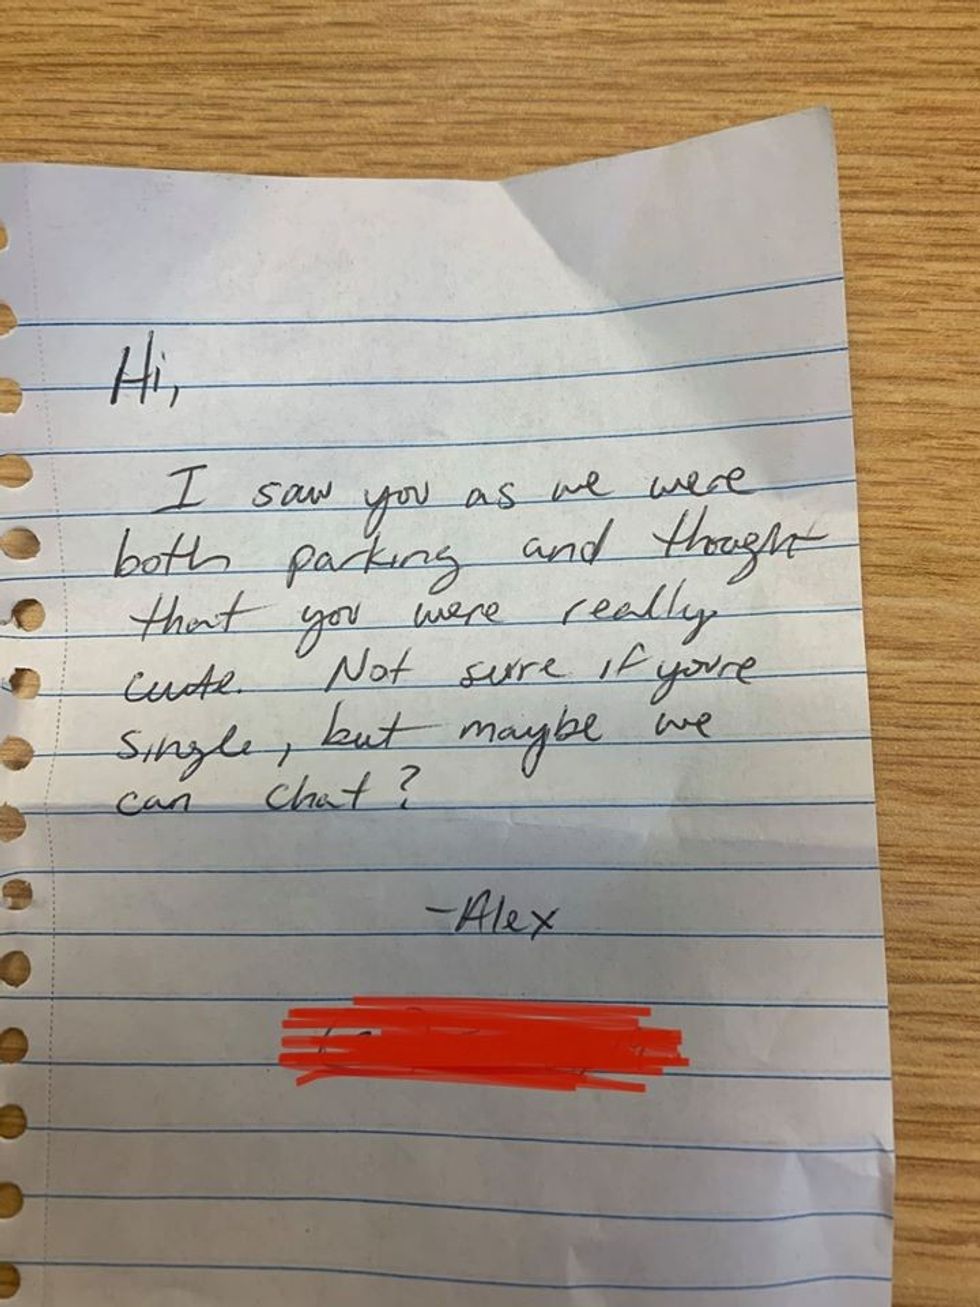 Hi,
I saw you as we were
both parking and thought
that you were really
cute. Not sure if youre
single, but maybe we
can chat?
-Alex